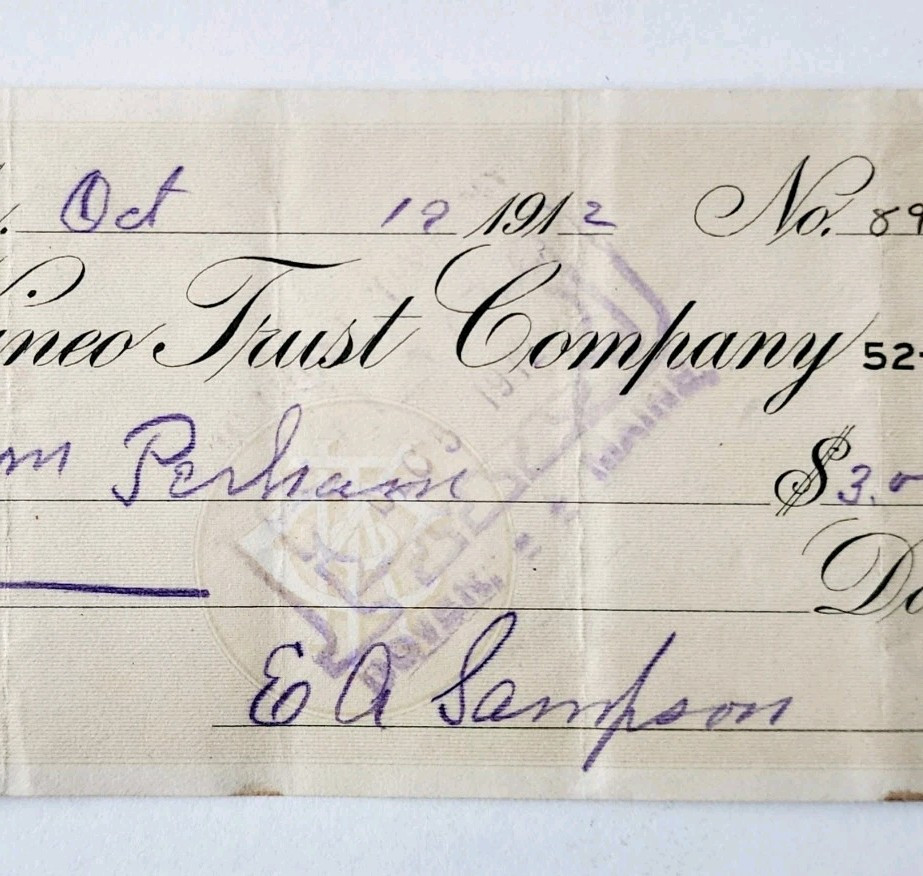 Oct 18 1912 No. 89
ineo Trust Company 52-
m Perham $3.0
Do
E A Sampson